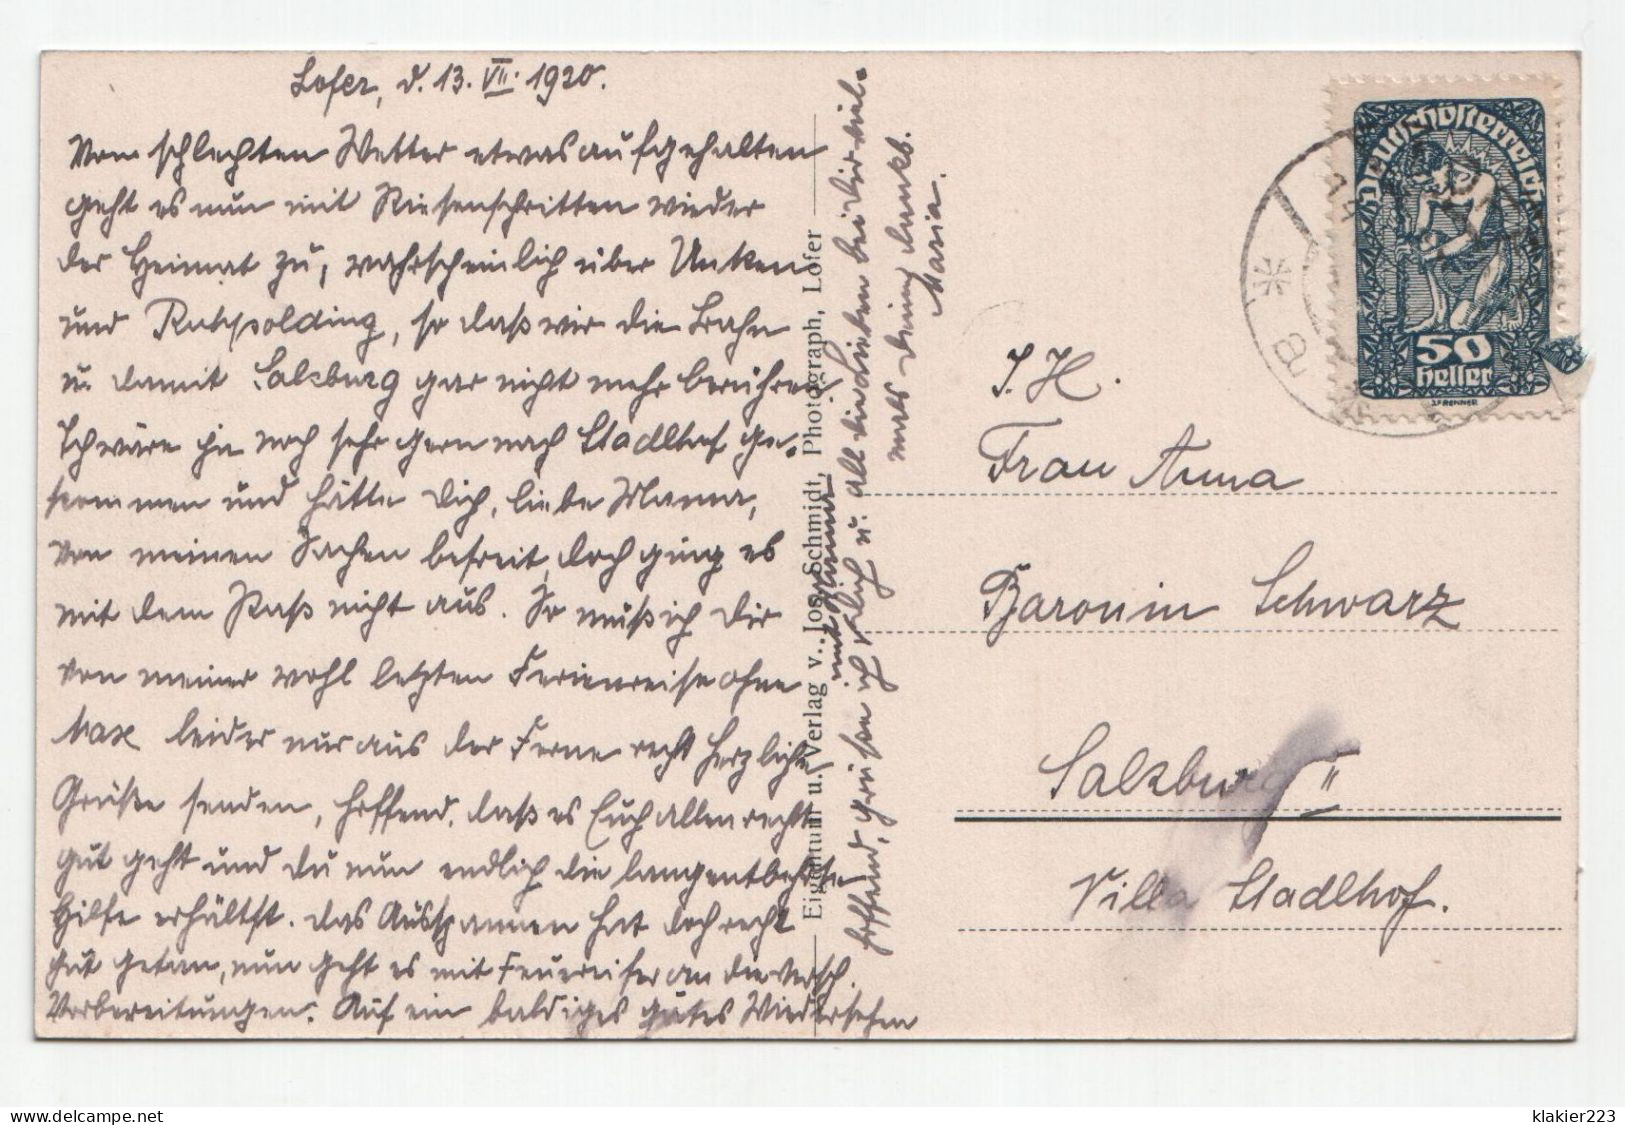 Lofer, d. 13. VII. 1920.
Vom schlechten Wetter etwas aufgehalten
geht es nun mit Riesenschritten wieder
der Heimat zu, wahrscheinlich über Unken
und Ruhpolding, so daß wir die Bahn
u. damit Salzburg gar nicht mehr berühren
Ich wäre ja noch sehr gern nach Stadlhof ge-
kommen und hätte Dich, liebe Mama,
von meinen Sachen befreit, doch ging es
mit dem Paß nicht aus. So muß ich Dir
von meiner wohl letzten Ferienreise ohne
Max leider nur aus der Ferne recht herzliche
Grüße senden, hoffend, daß es Euch allen recht
gut geht und Du nun endlich die langentbehrte
Hilfe erhältst. Das Ausspannen hat doch recht
gut getan, nun geht es mit Feuereifer an die versch.
Vorbereitungen. Auf ein baldiges gutes Wiedersehen
hoffend, grüße ich Dich u. all die Lieben bei Dir viel-
mals Deine dankb.
Maria.
Eigentum u. Verlag v. Jos. Schmidt, Photograph, Lofer
Deutschösterreich
50
Heller
J.F. RENNER
14
a
I. H.
Frau Anna
Baronin Schwarz
Salzburg II
Villa Stadlhof.
klakier223
www.delcampe.net